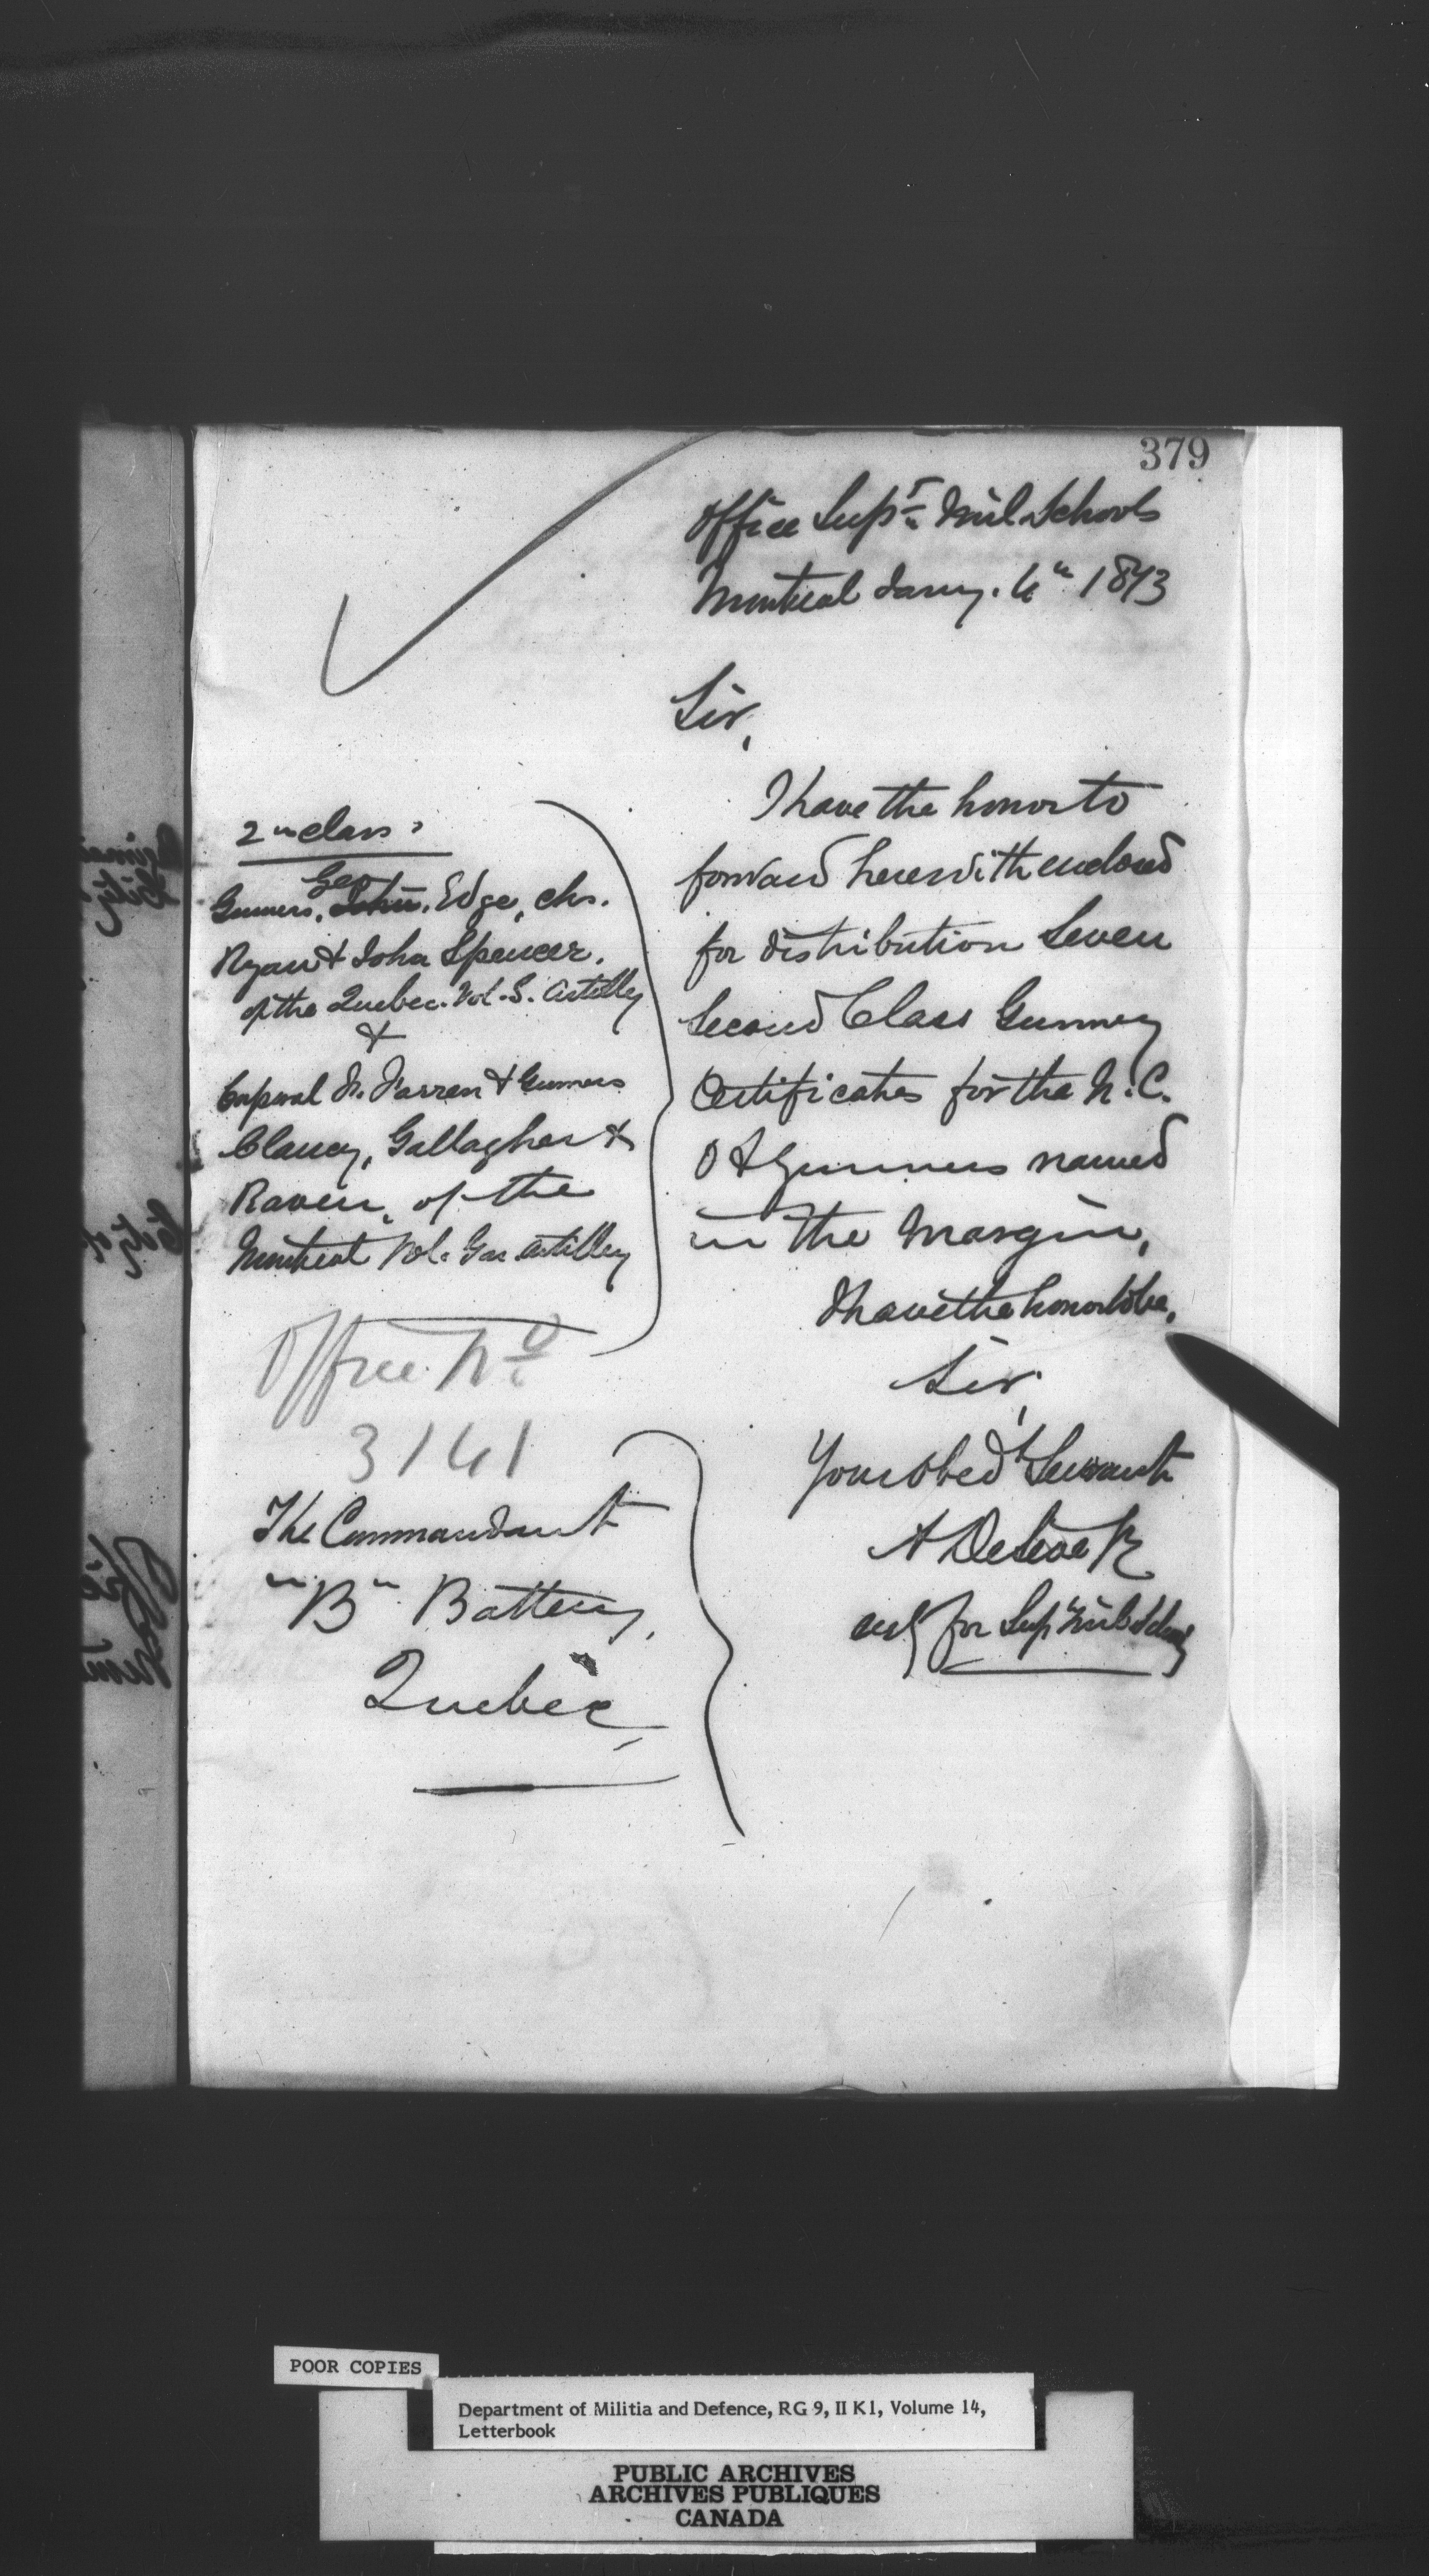 379
Office Supt. Mil Schools
Montreal Jany. 4th 1873
Sir,
I have the honor to
forward herewith enclosed
for distribution Seven
Second Class Gunnery
Certificates for the N.C.
O & Gunners named
in the Margin,
I have the honor to be,
Sir,
Your Obedt Servant
for Supt Mil Schools
2nd class
Geo
Gunners, John. Edge, Chs.
Ryan & John Spencer.
of the Quebec. Vol. G. Artillery
&
Corporal Farren & Gunners
Clancy, Gallagher &
Raven, of the
Montreal Vol. Gar Artillery
Office No
3141
The Commandant
"B" Battery,
Quebec
POOR COPIES
Department of Militia and Defence, RG 9, II K1, Volume 14,
Letterbook
PUBLIC ARCHIVES
ARCHIVES PUBLIQUES
CANADA